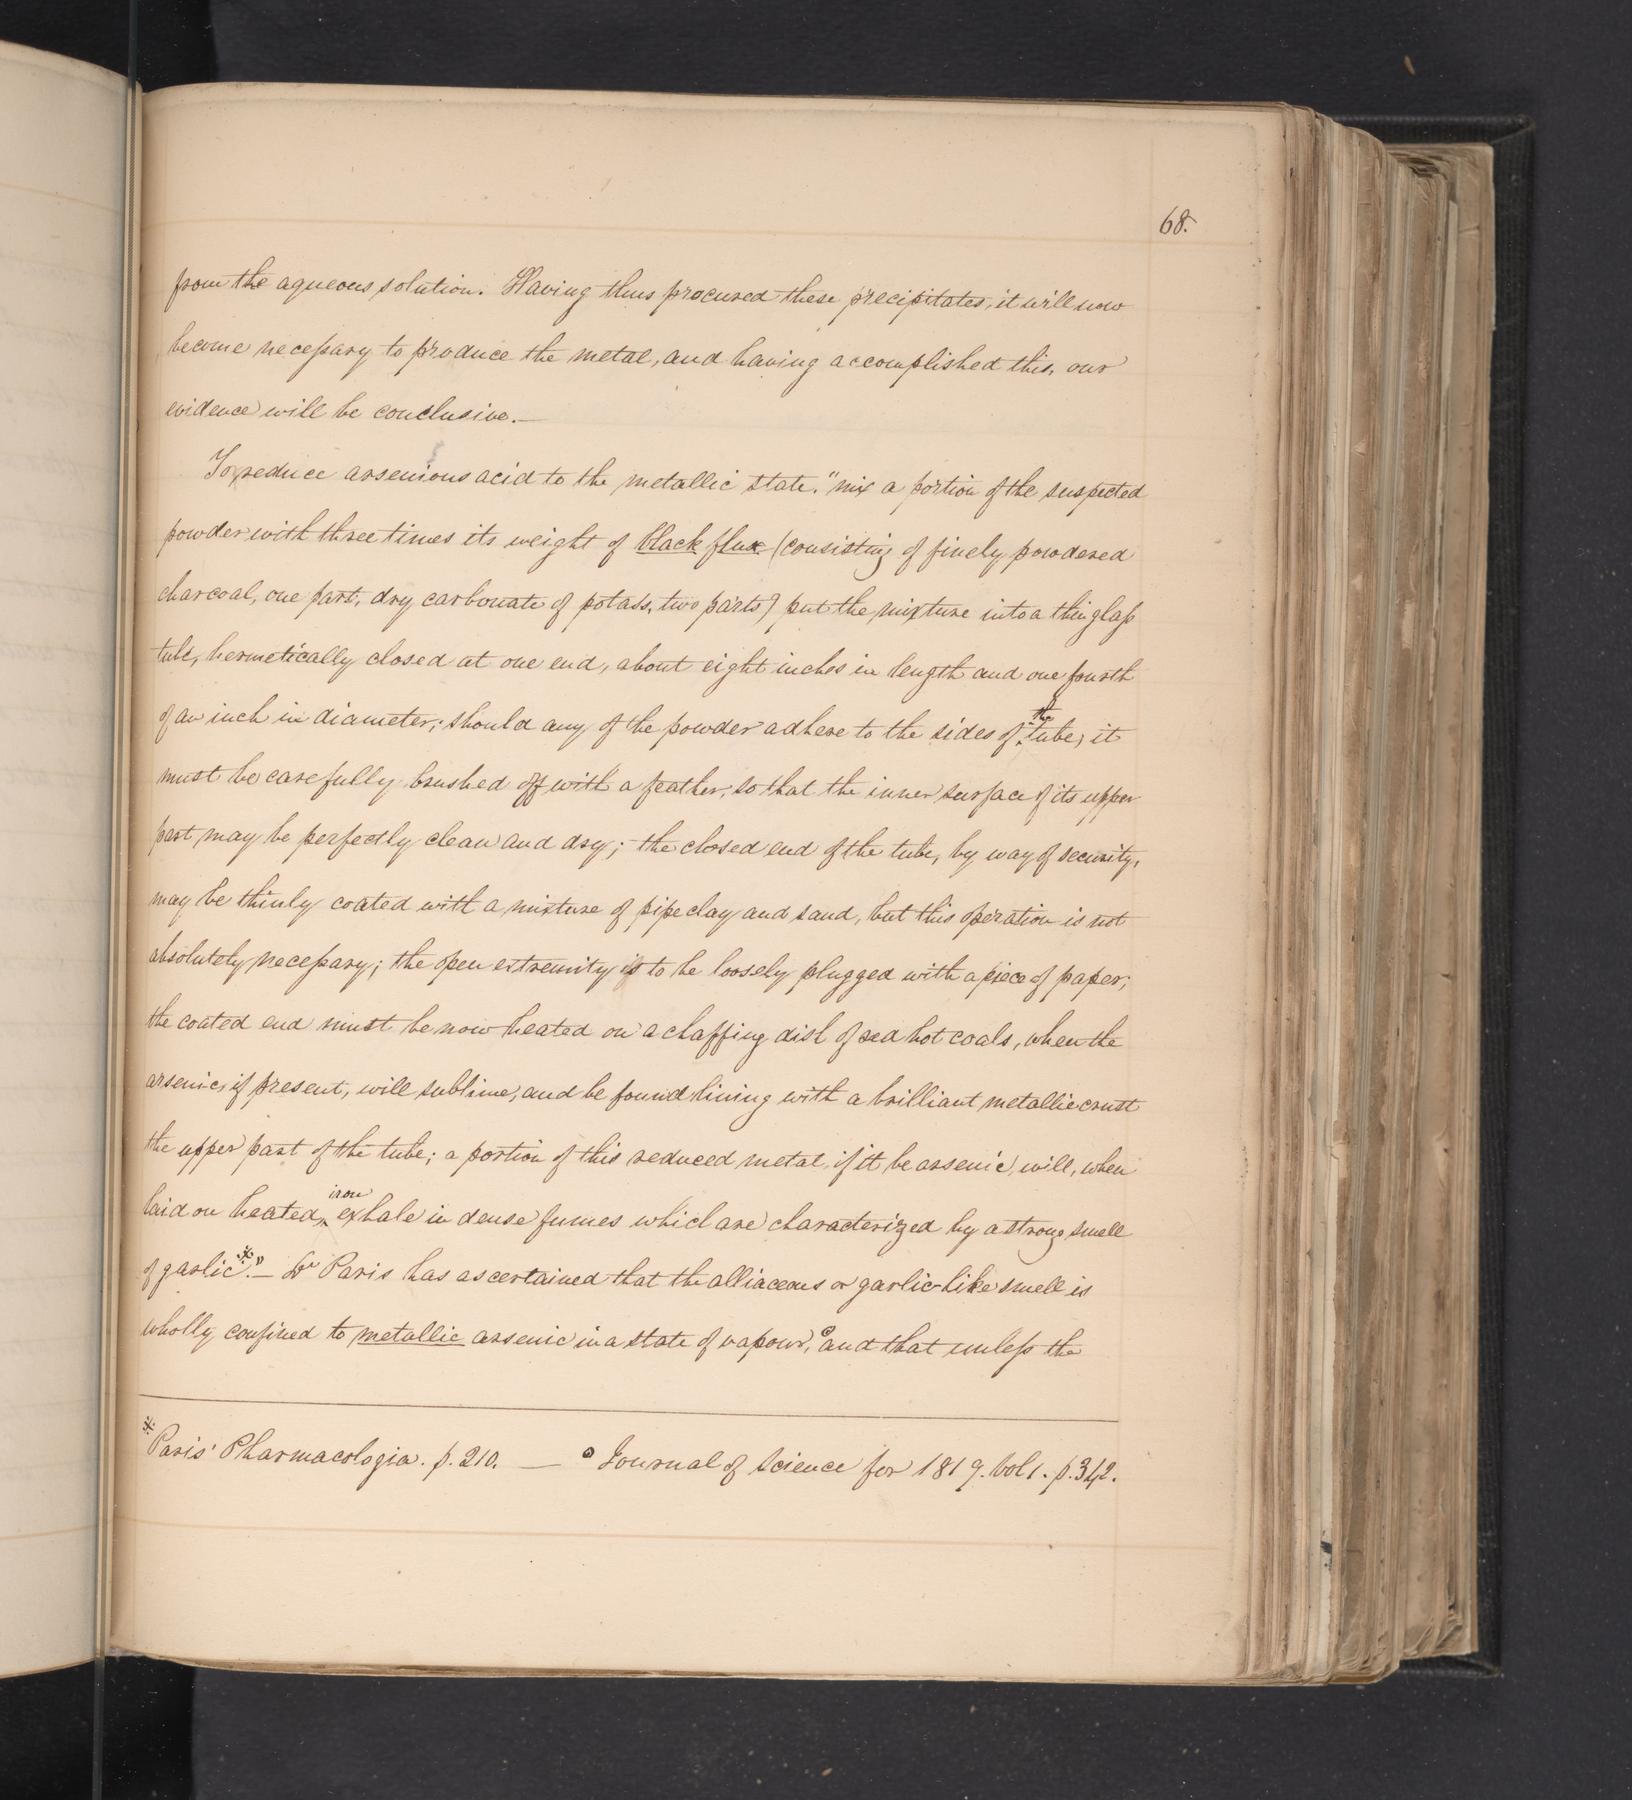 68.
from the aqueous solution. Having thus procured these precipitates, it will now
become necessary to produce the metal, and having accomplished this, our
evidence will be conclusive.—
To reduce arsenious acid to the metallic state. "mix a portion of the suspected
powder with three times its weight of black flux (consisting of finely powdered
charcoal, one part, dry carbonate of potass, two parts) put the mixture into a thin glass
tube, hermetically closed at one end, about eight inches in length and one fourth
of an inch in diameter; should any of the powder adhere to the sides of the tube, it
must be carefully brushed off with a feather, so that the inner surface of its upper
part may be perfectly clean and dry; the closed end of the tube, by way of security,
may be thinly coated with a mixture of pipe clay and sand, but this operation is not
absolutely necessary; the open extremity is to be loosely plugged with a piece of paper;
the coated end must be now heated on a chaffing dish of red hot coals, when the
arsenic, if present, will sublime, and be found lining with a brilliant metallic crust
the upper part of the tube; a portion of this reduced metal, if it be arsenic, will, when
laid on heated iron exhale in dense fumes which are characterized by a strong smell
of garlic※."— Dr Paris has ascertained that the alliaceous or garlic-like smell is
wholly confined to metallic arsenic in a state of vapour,° and that unless the
※ Paris' Pharmacologia. p. 210. — ° Journal of Science for 1819. Vol 1. p. 342.